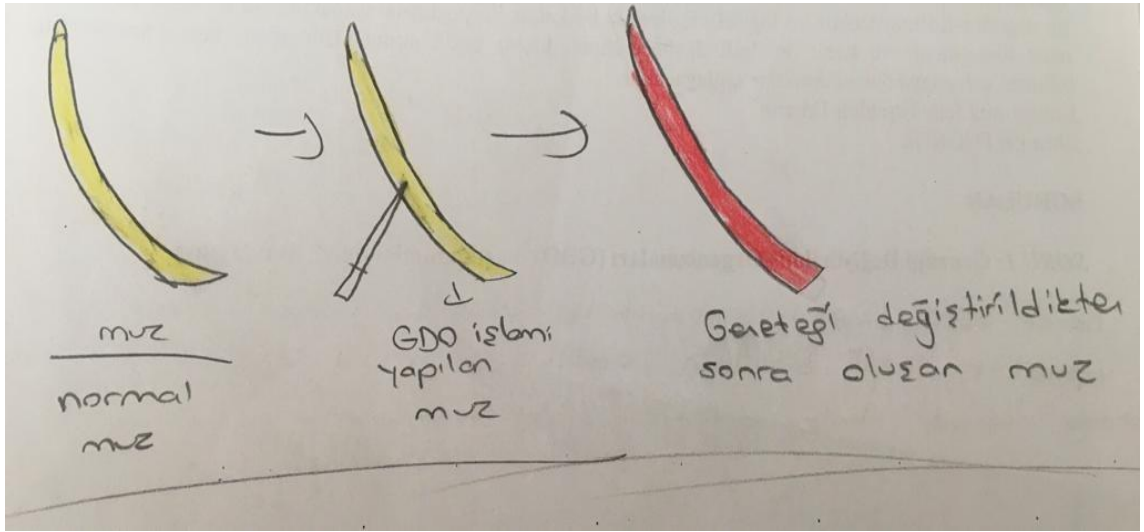 muz
normal
muz
GDO işlemi
yapılan
muz
Geneteği değiştirildikten
sonra oluşan muz